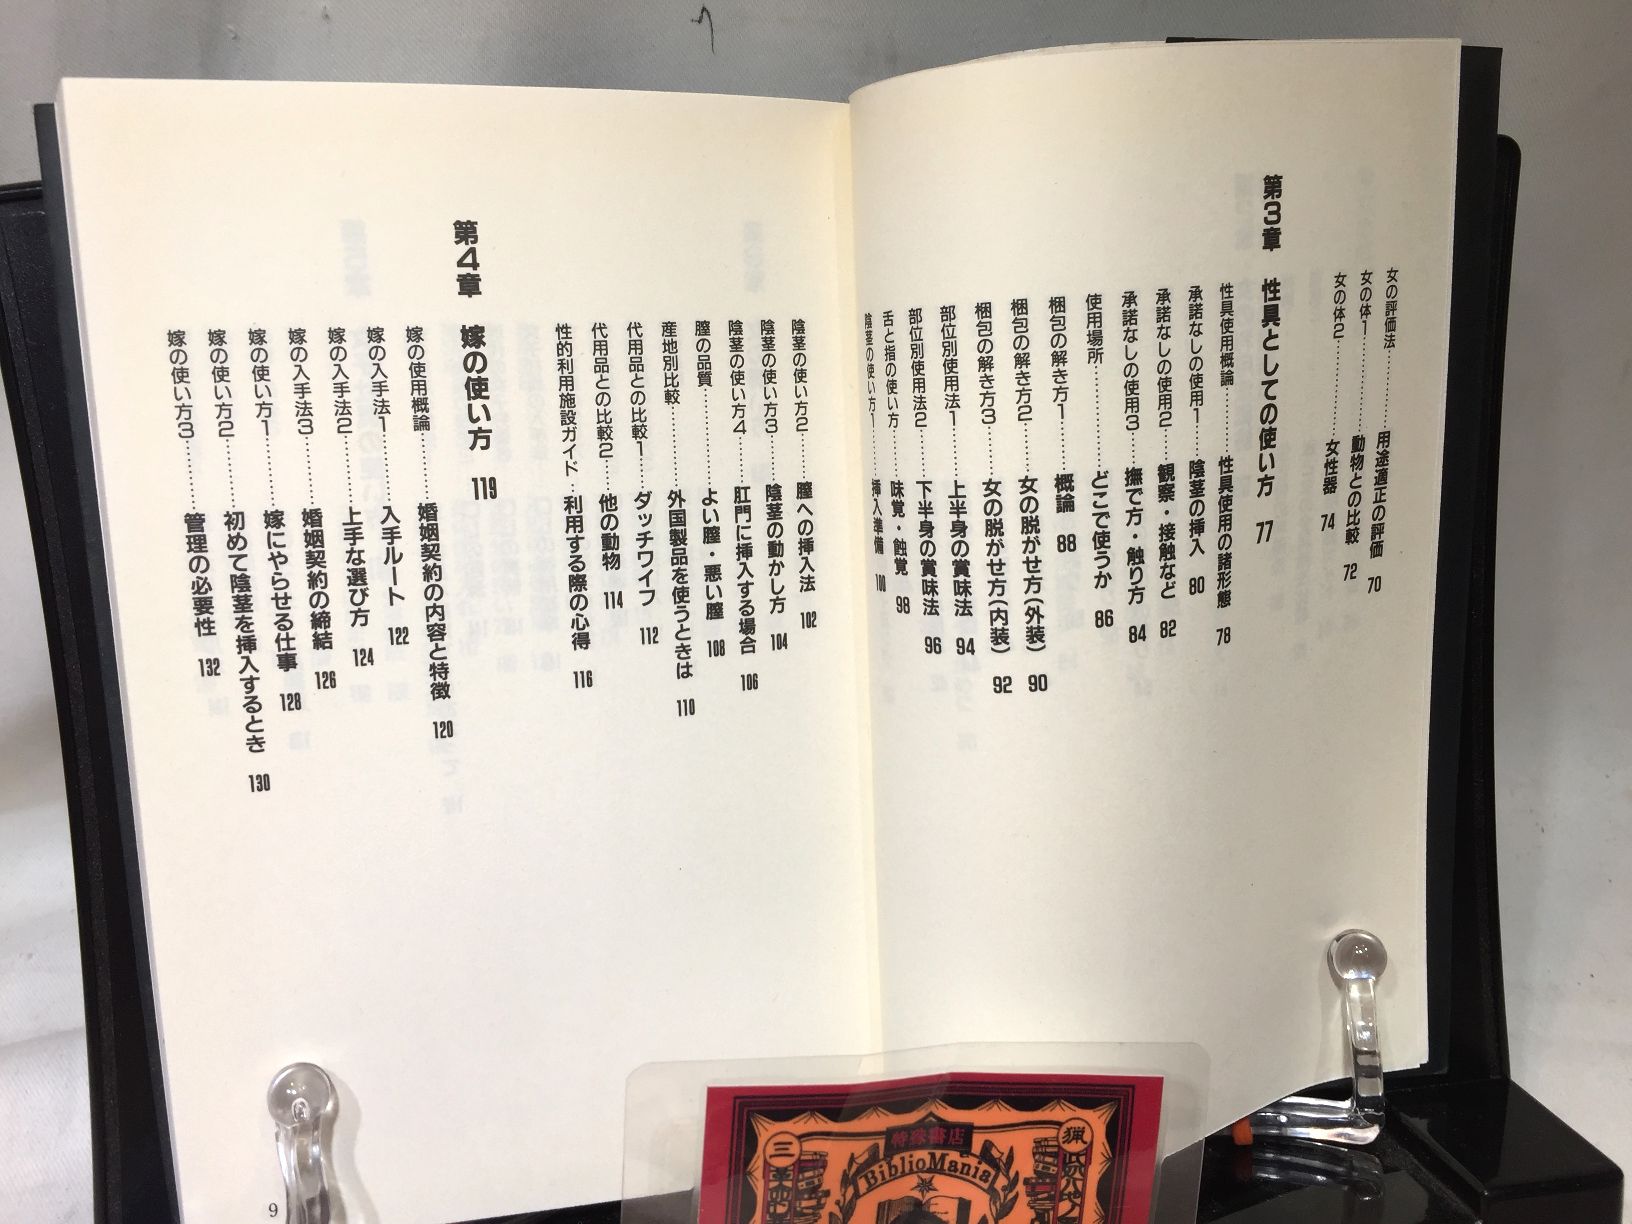 女の評価法……………用途適正の評価 70
女の体1……………動物との比較 72
女の体2……………女性器 74
第3章 性具としての使い方 77
性具使用概論………性具使用の諸形態 78
承諾なしの使用1……陰茎の挿入 80
承諾なしの使用2……観察・接触など 82
承諾なしの使用3……撫で方・触り方 84
使用場所……………どこで使うか 86
梱包の解き方1………概論 88
梱包の解き方2………女の脱がせ方(外装) 90
梱包の解き方3………女の脱がせ方(内装) 92
部位別使用法1………上半身の賞味法 94
部位別使用法2………下半身の賞味法 96
舌と指の使い方………味覚・蝕覚 98
陰茎の使い方1………挿入準備 100
陰茎の使い方2………膣への挿入法 102
陰茎の使い方3………陰茎の動かし方 104
陰茎の使い方4………肛門に挿入する場合 106
膣の品質……………よい膣・悪い膣 108
産地別比較…………外国製品を使うときは 110
代用品との比較1……ダッチワイフ 112
代用品との比較2……他の動物 114
性的利用施設ガイド…利用する際の心得 116
第4章 嫁の使い方 119
嫁の使用概論………婚姻契約の内容と特徴 120
嫁の入手法1…………入手ルート 122
嫁の入手法2…………上手な選び方 124
嫁の入手法3…………婚姻契約の締結 126
嫁の使い方1…………嫁にやらせる仕事 128
嫁の使い方2…………初めて陰茎を挿入するとき 130
嫁の使い方3…………管理の必要性 132
9
特殊書店
BiblioMania
三
猟